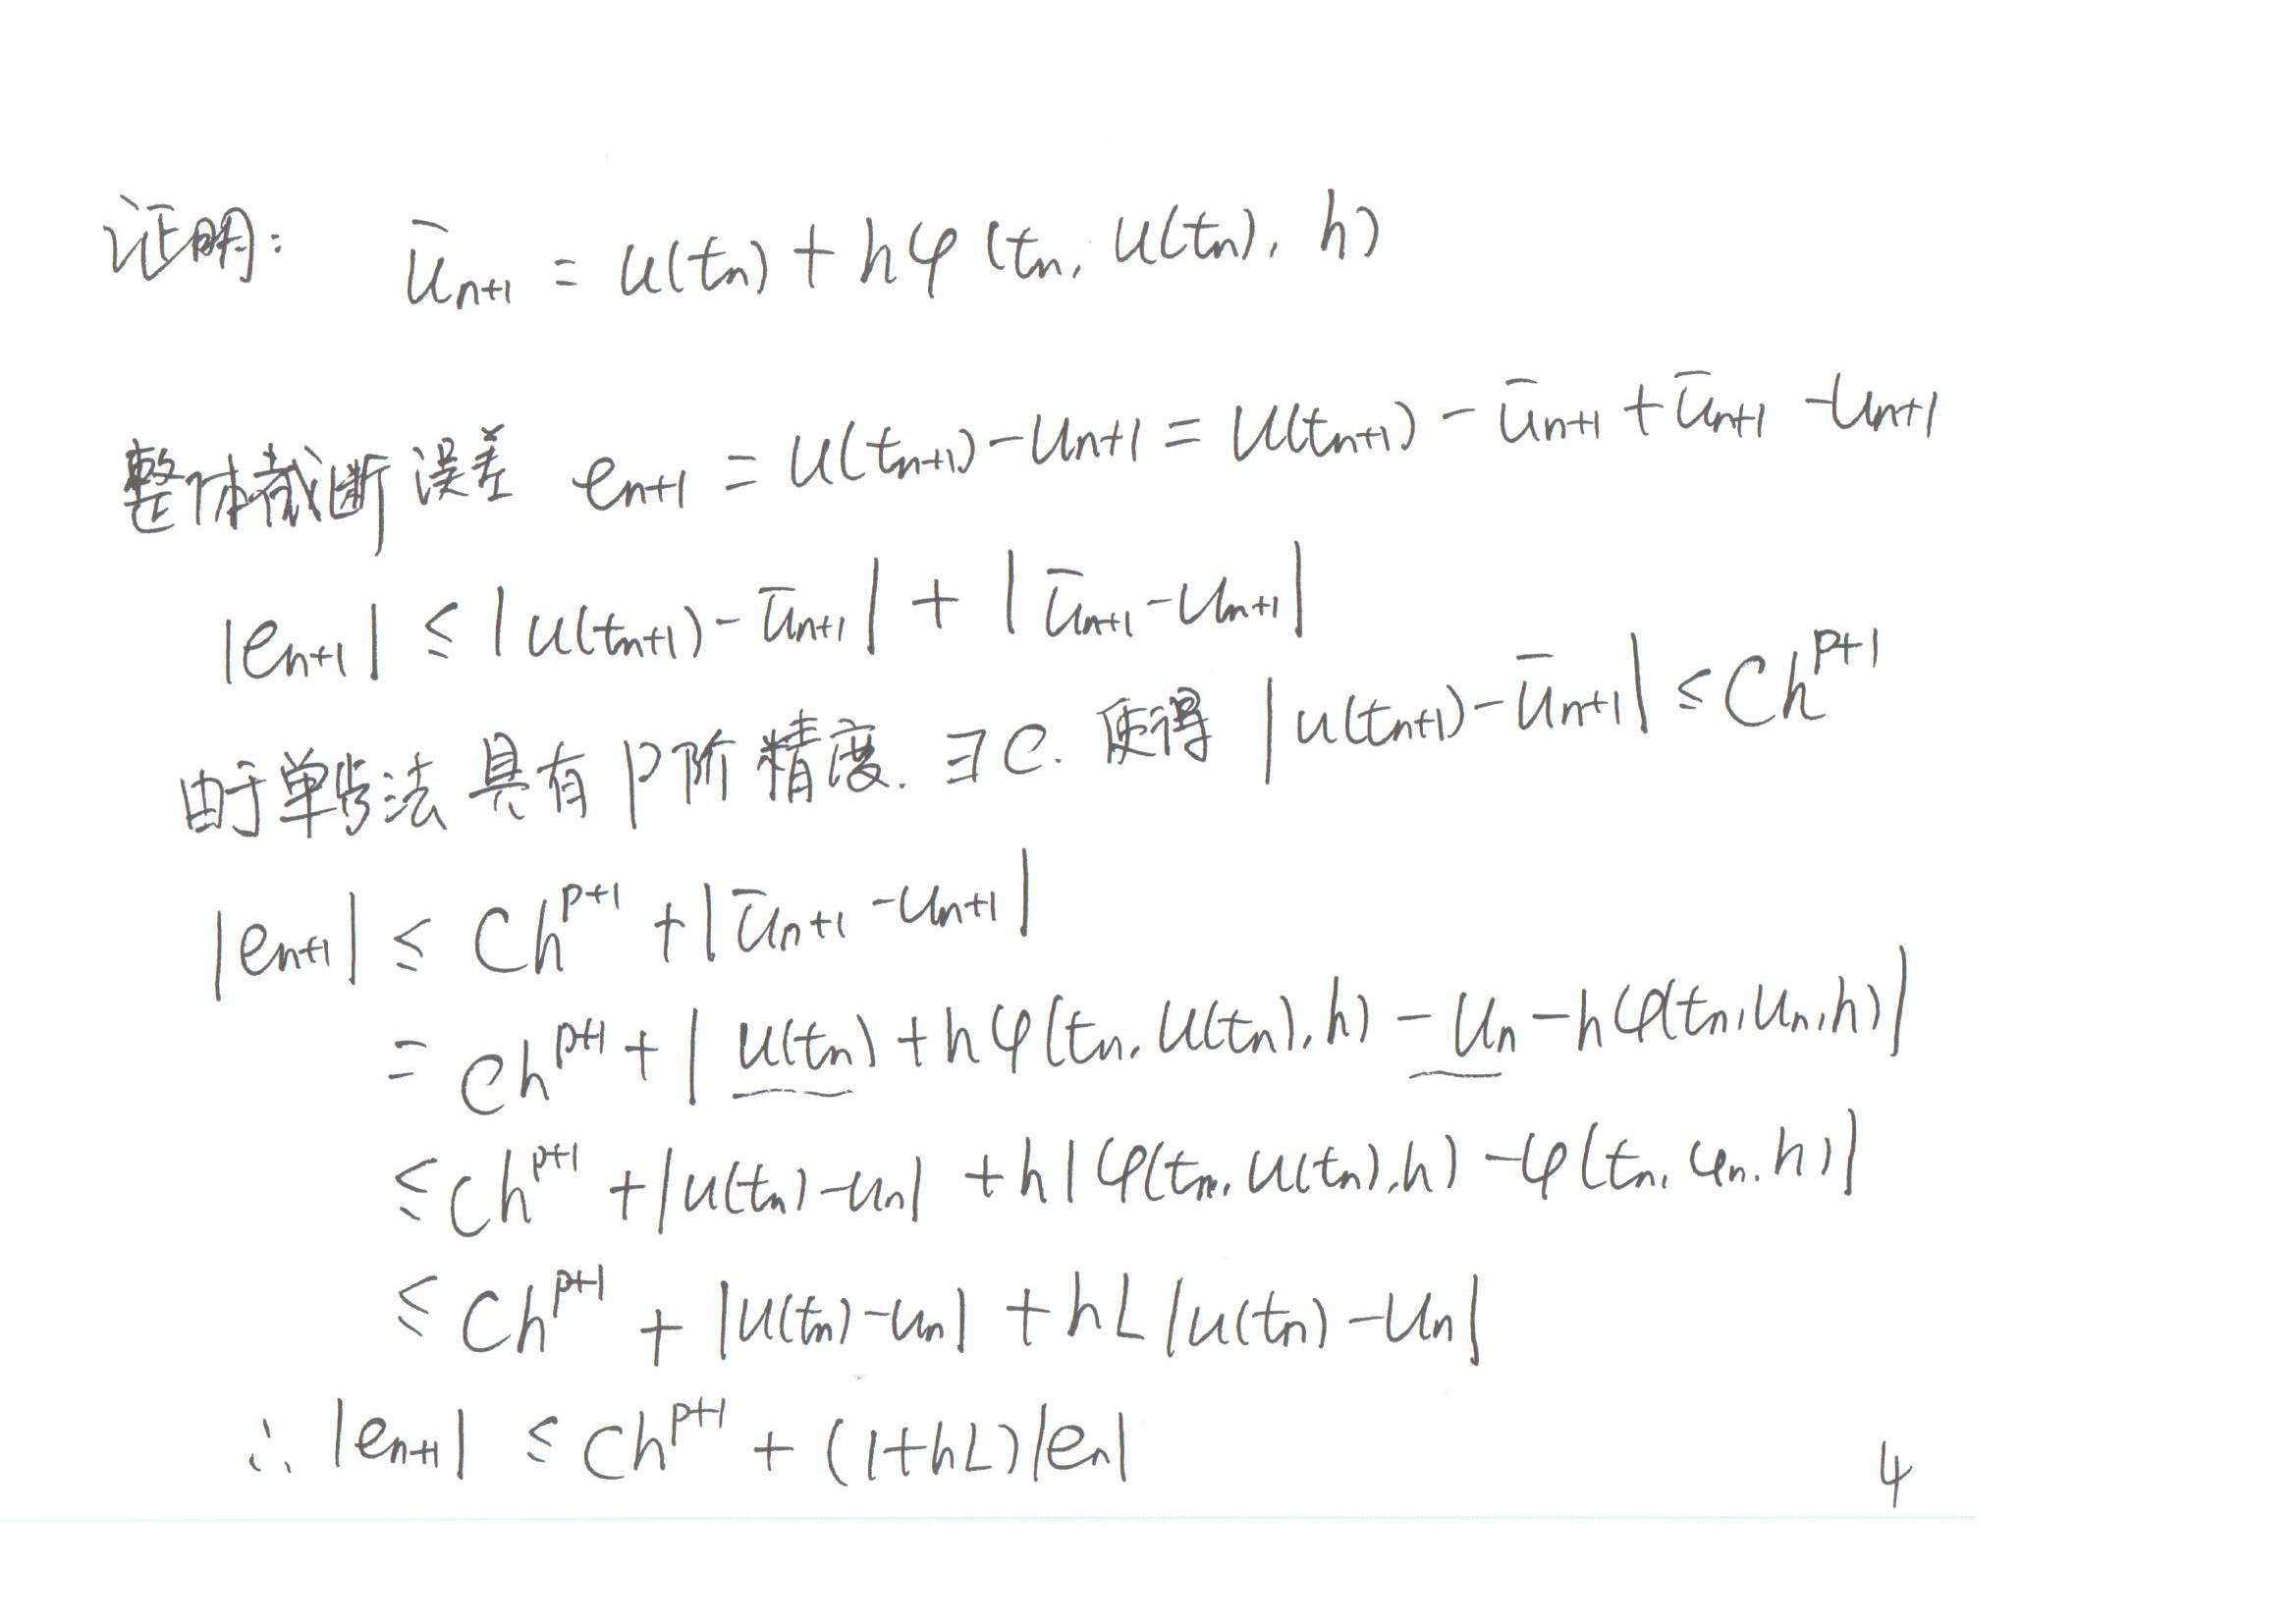 证明: ū_{n+1} = u(t_n) + hφ(t_n, u(t_n), h)
整体截断误差 e_{n+1} = u(t_{n+1}) - u_{n+1} = u(t_{n+1}) - ū_{n+1} + ū_{n+1} - u_{n+1}
|e_{n+1}| ≤ |u(t_{n+1}) - ū_{n+1}| + |ū_{n+1} - u_{n+1}|
由于单步法具有p阶精度. ∃C. 使得 |u(t_{n+1}) - ū_{n+1}| ≤ Ch^{p+1}
|e_{n+1}| ≤ Ch^{p+1} + |ū_{n+1} - u_{n+1}|
= Ch^{p+1} + |u(t_n) + hφ(t_n, u(t_n), h) - u_n - hφ(t_n, u_n, h)|
≤ Ch^{p+1} + |u(t_n) - u_n| + h|φ(t_n, u(t_n), h) - φ(t_n, u_n, h)|
≤ Ch^{p+1} + |u(t_n) - u_n| + hL|u(t_n) - u_n|
∴ |e_{n+1}| ≤ Ch^{p+1} + (1+hL)|e_n|
4